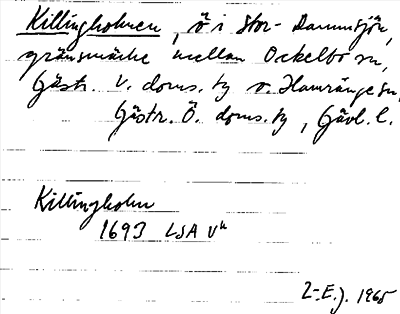 Killingholmen, ö i Stor-Dammsjön,
gränsmärke mellan Ockelbo sn,
Gästr. V. doms. tg o. Hamrånge sn,
Gästr. Ö. doms. tg, Gävl. l.
Killingholm
1693 LSA V
L-E.J. 1965